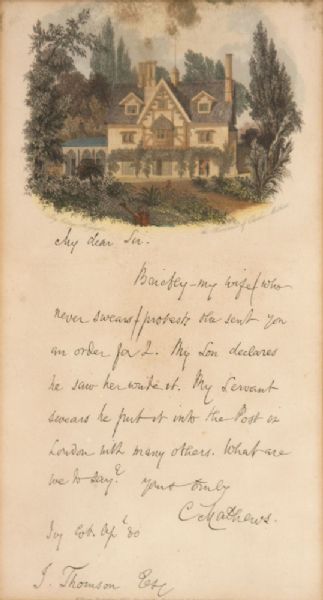 My dear Sir.
Briefly - my wife (who
never swears) protests she sent you
an order for 2. My Son declares
he saw her write it. My Servant
swears he put it into the Post in
London with many others. What are
we to say?
yours truly
C Mathews.
Ivy Cot. Apl 30
J. Thomson Esq